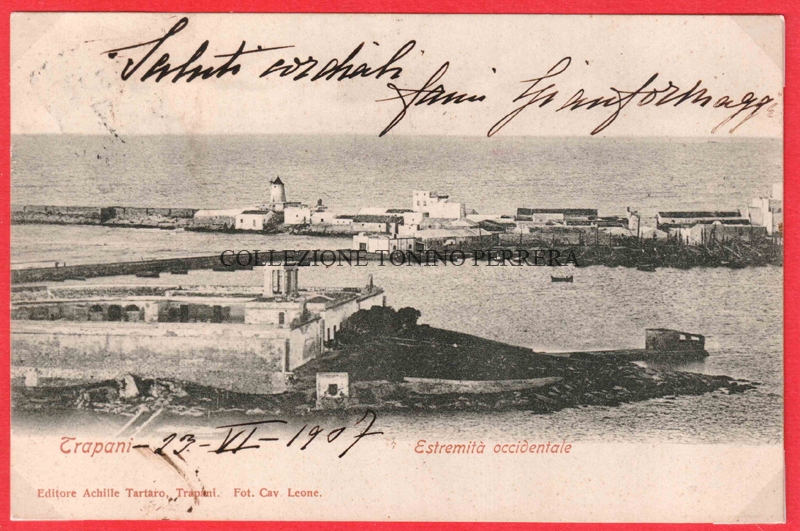 Saluti cordiali
Gianformagg
COLLEZIONE TONINO PERRERA
Trapani - 23 - VI - 1907
Estremità occidentale
Editore Achille Tartaro, Trapani. Fot. Cav. Leone.